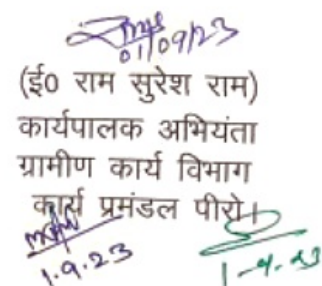 01/09/23
(ई० राम सुरेश राम)
कार्यपालक अभियंता
ग्रामीण कार्य विभाग
कार्य प्रमंडल पीरो।
1.9.23